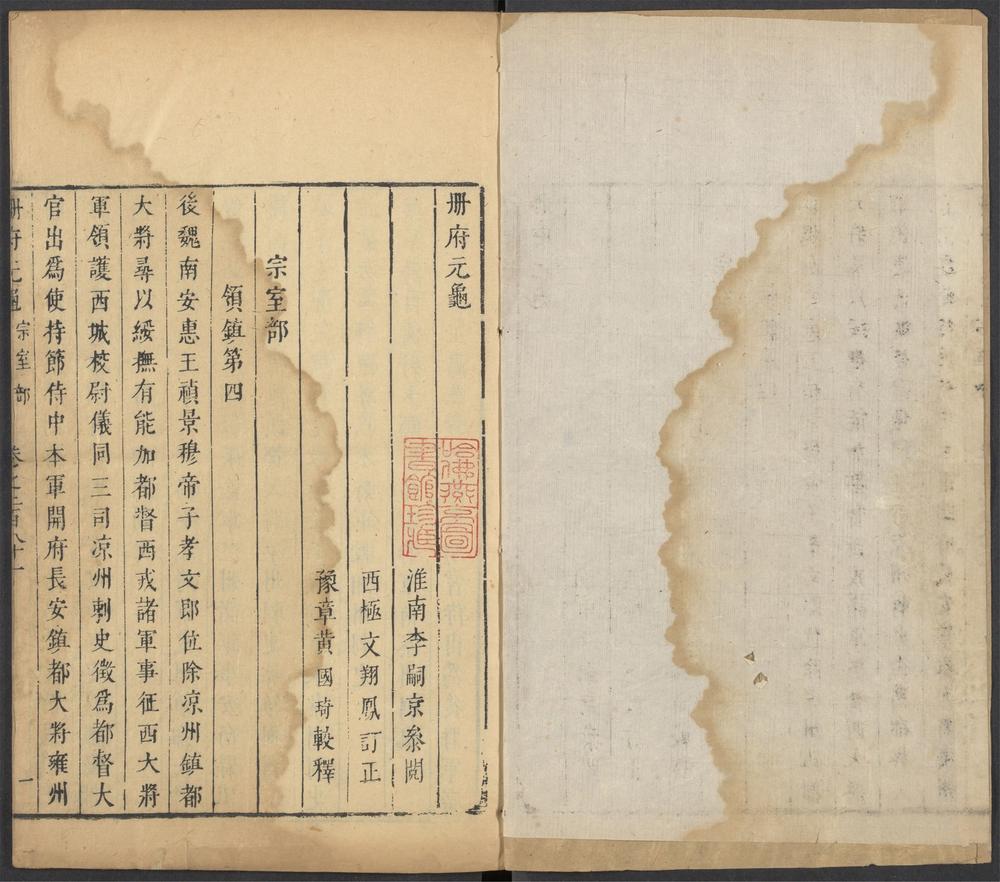 冊府元龜
淮南李嗣京叅閱
西極文翔鳳訂正
豫章黃國琦較釋
宗室部
領鎮第四
後魏南安惠王禎景穆帝子孝文即位除凉州鎮都
大將尋以綏撫有能加都督西戎諸軍事征西大將
軍領護西域校尉儀同三司凉州刺史徵爲都督大
官出爲使持節侍中本軍開府長安鎮都大將雍州
冊府元龜 宗室部 卷之二百八十一 一
哈佛燕京圖書館珍藏